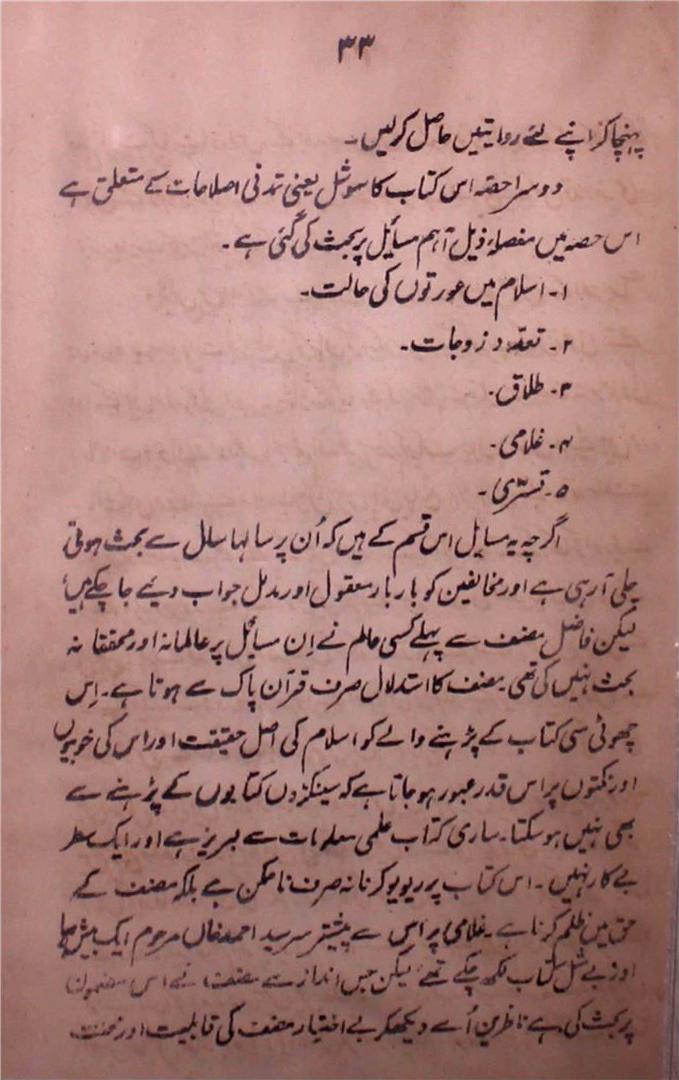 ۳۳
پہنچاکر اپنے لئے روایتیں حاصل کرلیں۔
دوسرا حصہ اس کتاب کا سوشل یعنی تمدنی اصلاحات سے متعلق ہے
اس حصہ میں مفصلۂ ذیل اہم مسایل پر بحث کی گئی ہے۔
۱۔ اسلام میں عورتوں کی حالت۔
۲۔ تعدد زوجات۔
۳۔ طلاق۔
۴۔ غلامی۔
۵۔ تسرّی۔
اگرچہ یہ مسایل اس قسم کے ہیں کہ اُن پر سالہا سال سے بحث ہوتی
چلی آرہی ہے اور مخالفین کو بار بار معقول اور مدلل جواب دیئے جاچکے ہیں
لیکن فاضل مصنف سے پہلے کسی عالم نے اِن مسائل پر عالمانہ اور محققانہ
بحث نہیں کی تھی۔ مصنف کا استدلال صرف قرآن پاک سے ہوتا ہے۔ اِس
چھوٹی سی کتاب کے پڑہنے والے کو اسلام کی اصل حقیقت اور اس کی خوبیوں
اور نکتوں پر اس قدر عبور ہوجاتا ہے کہ سینکڑوں کتابوں کے پڑہنے سے
بھی نہیں ہوسکتا۔ ساری کتاب علمی معلومات سے لبریز ہے اور ایک سطر
بے کار نہیں۔ اس کتاب پر ریویو کرنا نہ صرف ناممکن ہے بلکہ مصنف کے
حق میں ظلم کرنا ہے۔ غلامی پر اس سے پیشتر سر سید احمد خاں مرحوم ایک بیش بہا
اور بے مثل کتاب لکھ چکے تھے لیکن جس انداز سے مصنف نے اس مضمون
پر بحث کی ہے ناظرین اُسے دیکھکر بے اختیار مصنف کی قابلیت اور محنت